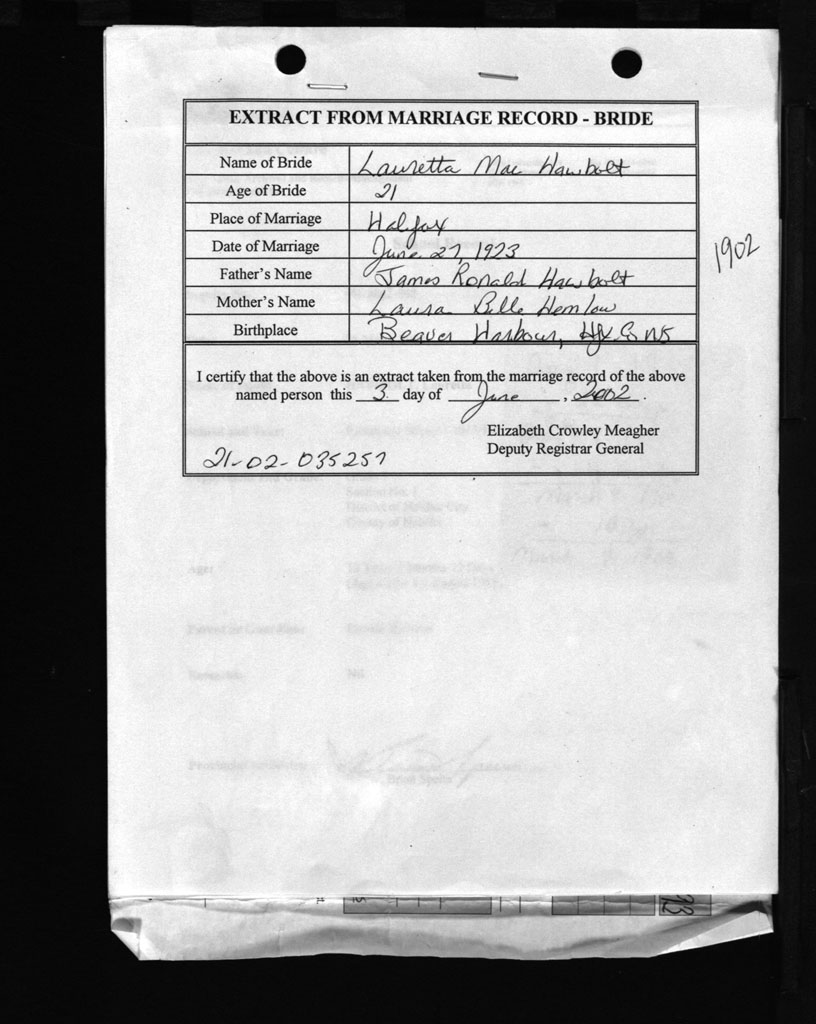 EXTRACT FROM MARRIAGE RECORD - BRIDE
Name of Bride Lauretta Mae Hawbolt
Age of Bride 21
Place of Marriage Halifax
Date of Marriage June 27, 1923
Father's Name James Ronald Hawbolt
Mother's Name Laura Belle Hemlow
Birthplace Beaver Harbour, Hfx Co NS
1902
I certify that the above is an extract taken from the marriage record of the above
named person this 3 day of June, 2002.
Elizabeth Crowley Meagher
Deputy Registrar General
21-02-035257